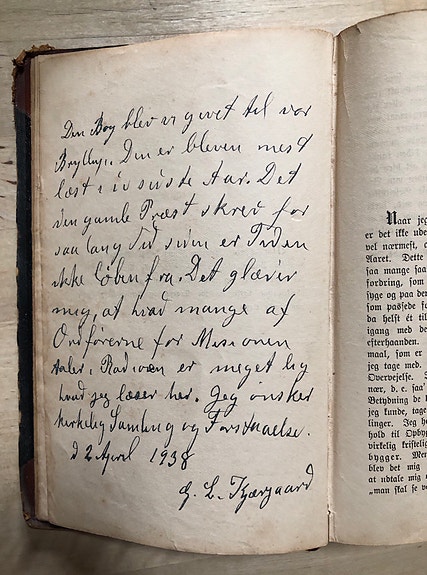 Den Bog blev vi givet til vor
Bryllup. Den er bleven mest
læst i de sidste Aar. Det
den gamle Præst skrev for
saa lang Tid siden er Tiden
ikke løben fra. Det glæder
mig, at hvad mange af
Ordførerne for Missionen
taler i Radioen er meget lig
hvad jeg læser her. Jeg ønsker
kirkelig Samling og Forstaaelse.
d 2 April 1938
L. Kjærgaard
Naar jeg
er det ikke ude
vel nærmest, a
Aaret. Dette
saa mange saa
fordring, som
syge og paa den
som passede fo
da helst ét til
igang med de
efterhaanden.
maal, som er
jeg tage med.
Overvejelse. J
nær, d. e. saa
Betydning de
jeg kunde, tage
linger. Jeg h
hold til Opbyg
virkelig kristelig
bygger. Men
blev det mig
at udtale mig
„man skal se v